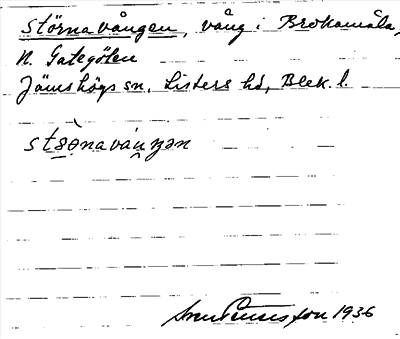 Störnavången, vång i Brokamåla,
N. Gategölen
Jämshögs sn, Listers hd, Blek. l.
stœ̀rnavåŋən
1936